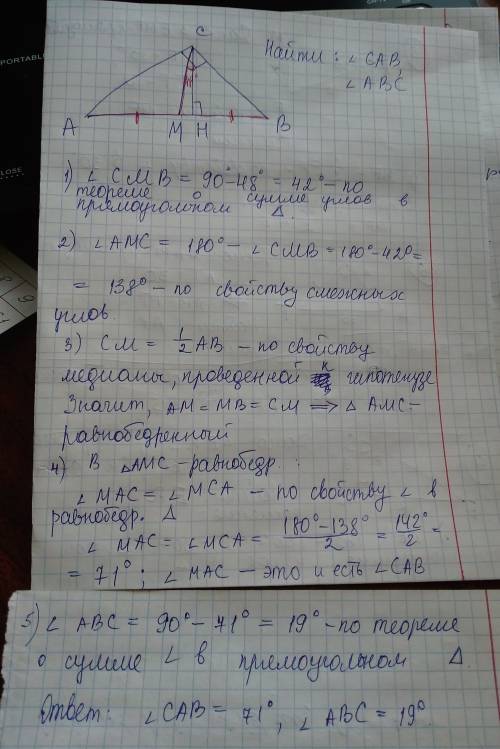 PORTABLE
Найти: ∠CAB,
∠ABC
C
48°
A M H B
1) ∠CMB = 90°-48° = 42° - по
теореме о сумме углов в
прямоугольном Δ.
2) ∠AMC = 180° - ∠CMB = 180° - 42° =
= 138° - по свойству смежных
углов
3) CM = 1/2 AB - по свойству
медианы, проведенной к гипотенузе
Значит, AM = MB = CM ⟹ Δ AMC -
равнобедренный
4) В ΔAMC - равнобедр.:
∠MAC = ∠MCA - по свойству ∠ в
равнобедр. Δ
∠MAC = ∠MCA = (180°-138°)/2 = 142°/2 =
= 71°; ∠MAC - это и есть ∠CAB
5) ∠ABC = 90° - 71° = 19° - по теореме
о сумме ∠ в прямоугольном Δ.
Ответ: ∠CAB = 71°, ∠ABC = 19°.